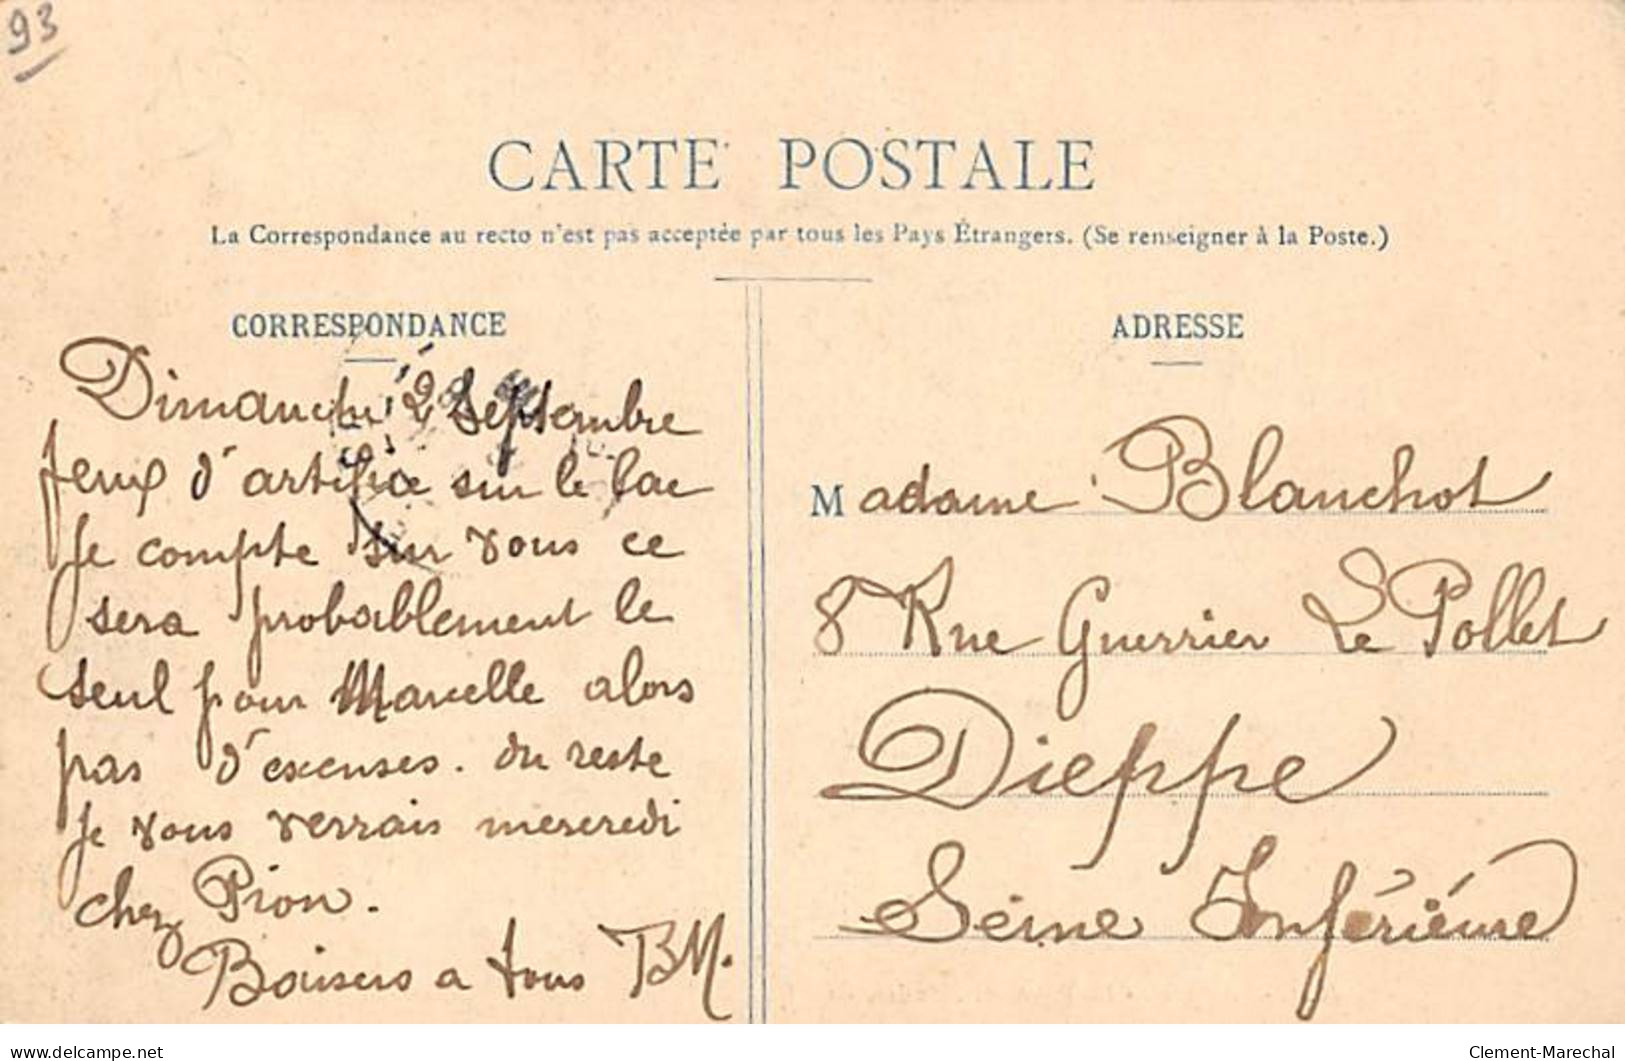 93
CARTE POSTALE
La Correspondance au recto n'est pas acceptée par tous les Pays Étrangers. (Se renseigner à la Poste.)
CORRESPONDANCE
Dimanche 2 Septembre
feux d'artifice sur le lac
Je compte sur vous ce
sera probablement le
seul pour Marcelle alors
pas d'excuses. du reste
je vous verrais mercredi
chez Pion.
Baisers a tous BM.
ADRESSE
Madame Blanchot
8 Rue Guerrier Le Pollet
Dieppe
Seine Inférieure
delcampe.net
Clement-Marechal